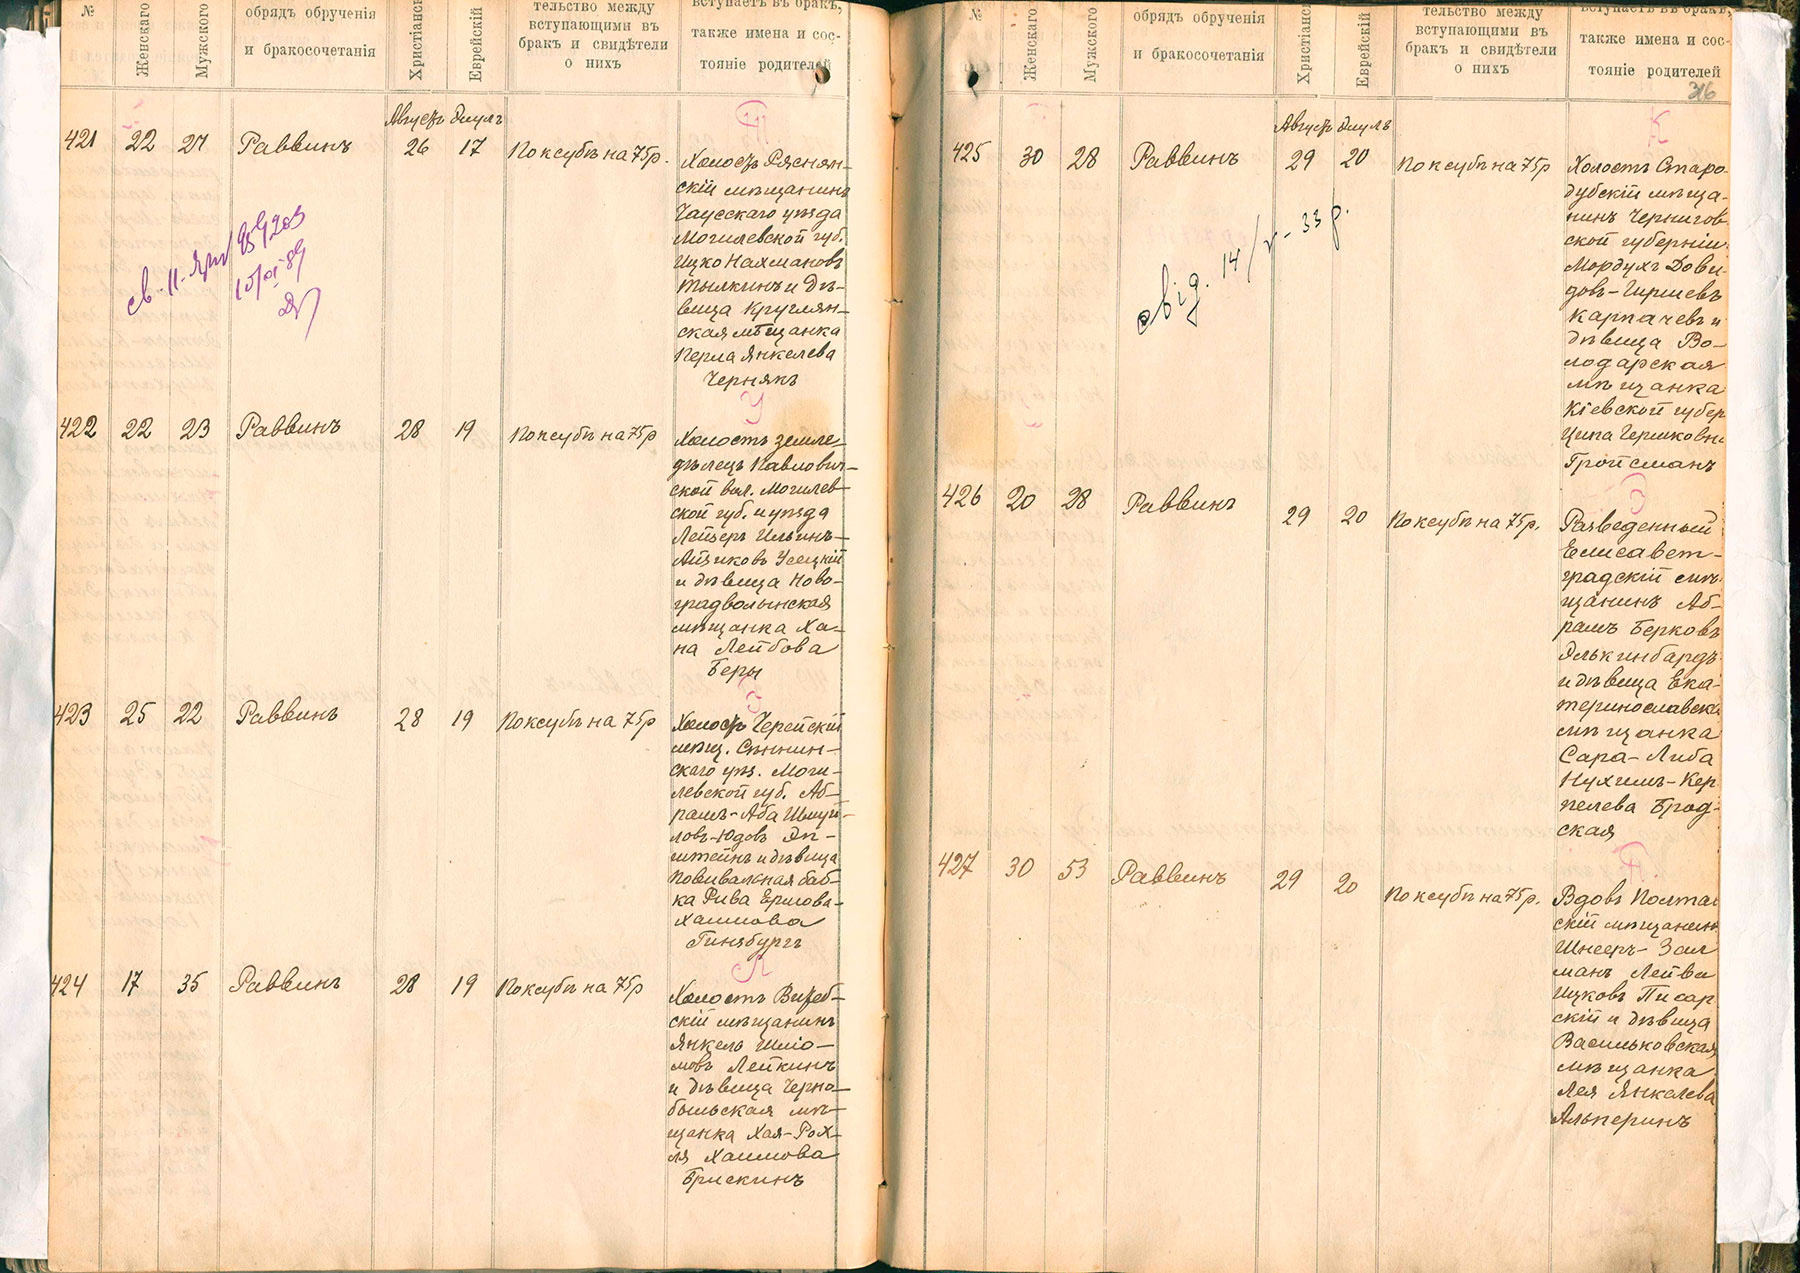 №
Женскаго
Мужского
обрядъ обрученія
и бракосочетанія
Христіанс
Еврейскій
тельство между
вступающими въ
бракъ и свидѣтели
о нихъ
вступаетъ въ бракъ,
также имена и сос-
тояніе родителей
Августъ Элулъ
421 22 27 Раввинъ 26 17 По ксубѣ на 75 р.
Холостъ Ряснян-
скій мѣщанинъ
Чаусскаго уѣзда
Могилевской губ.
Ицко Нахмановъ
Тылкинъ и дѣ-
вица Круглян-
ская мѣщанка
Перла Янкелева
Чернякъ
422 22 23 Раввинъ 28 19 По ксубѣ на 75 р
Холостъ земле-
дѣлецъ Павлович-
ской вол. Могилев-
ской губ. и уѣзда
Лейзеръ Ильинъ-
Айзиковъ Усецкій
и дѣвица Ново-
градволынская
мѣщанка Ха-
на Лейбова
Беры
423 25 22 Раввинъ 28 19 По ксубѣ на 75 р
Холостъ Черейскій
мѣщ. Сѣннин-
скаго уѣз. Моги-
левской губ. Аб-
рамъ-Аба Шмуй-
ловъ-Юдовъ Эп-
штейнъ и дѣвица
повивальная баб-
ка Рива Ершова-
Хаимова
Гинзбургъ
424 17 35 Раввинъ 28 19 По ксубѣ на 75 р
Холостъ Витеб-
скій мѣщанинъ
Янкель Шлiо-
мовъ Лейкинъ
и дѣвица Черно-
быльская мѣ-
щанка Хая-Рох-
ля Хаимова
Брискинъ
№
Женскаго
Мужского
обрядъ обрученія
и бракосочетанія
Христіанс
Еврейскій
тельство между
вступающими въ
бракъ и свидѣтели
о нихъ
вступаетъ въ бракъ,
также имена и сос-
тояніе родителей
Августъ Элулъ
425 30 28 Раввинъ 29 20 По ксубѣ на 75 р
свід. 14/V-33 р.
Холостъ Старо-
дубскій мѣща-
нинъ Чернигов-
ской губерніи
Мордухъ Дови-
довъ-Гиршевъ
Карпачевъ и
дѣвица Во-
лодарская
мѣщанка
Кіевской губер
Ципа Гершковна
Гройсманъ
426 20 28 Раввинъ 29 20 По ксубѣ на 75 р.
Разведенный
Елисавет-
градскій мѣ-
щанинъ Аб-
рамъ Берковъ
Элькинбардъ
и дѣвица Ека-
теринославска
мѣщанка
Сара-Либа
Нухимъ-Кер
пелева Брод-
ская
427 30 53 Раввинъ 29 20 По ксубѣ на 75 р.
Вдовъ Полтав
скій мѣщанинъ
Шнееръ-Зал
манъ Лейва
Ицковъ Писар
скій и дѣвица
Васильковская
мѣщанка
Лея Янкелева
Альперинъ